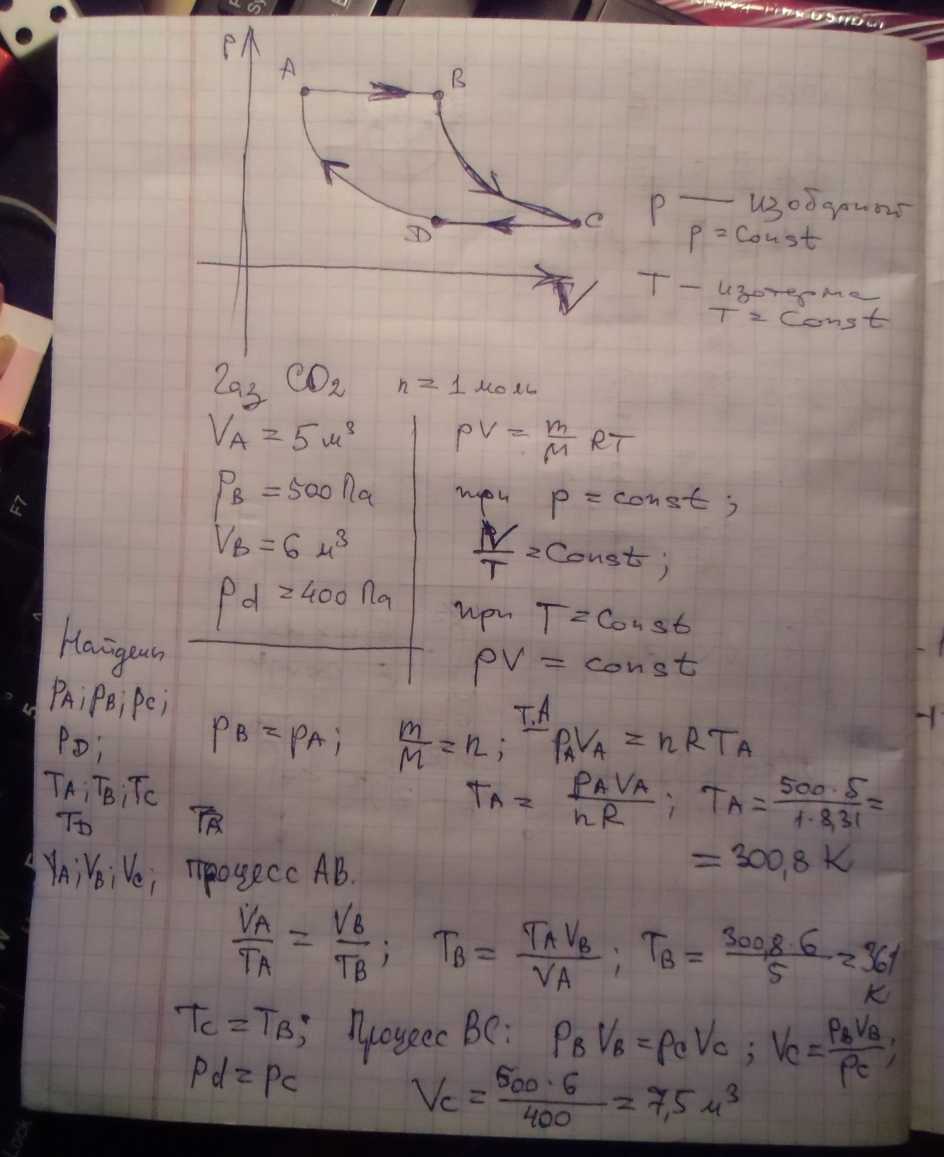 p
A
B
D
C
V
p — изобарный
p = const
T — изотерма
T = const
Газ CO2 n = 1 моль
VA = 5 м³
pB = 500 Па
VB = 6 м³
pd = 400 Па
pV = m/M RT
при p = const;
V/T = Const;
при T = Const
pV = const
Найдены
pA; pB; pC;
pD;
TA; TB; TC
TD
VA; VB; VC;
pB = pA; m/M = n; т.А pAVA = nRTA
TA = pAVA/nR; TA = 500·5/1·8,31 =
= 300,8 K
TA
Процесс AB.
VA/TA = VB/TB; TB = TAVB/VA; TB = 300,8·6/5 = 361 K
TC = TB; Процесс BC: pBVB = pCVC; VC = pBVB/pC;
pd = pc VC = 500·6/400 = 7,5 м³
F7
5